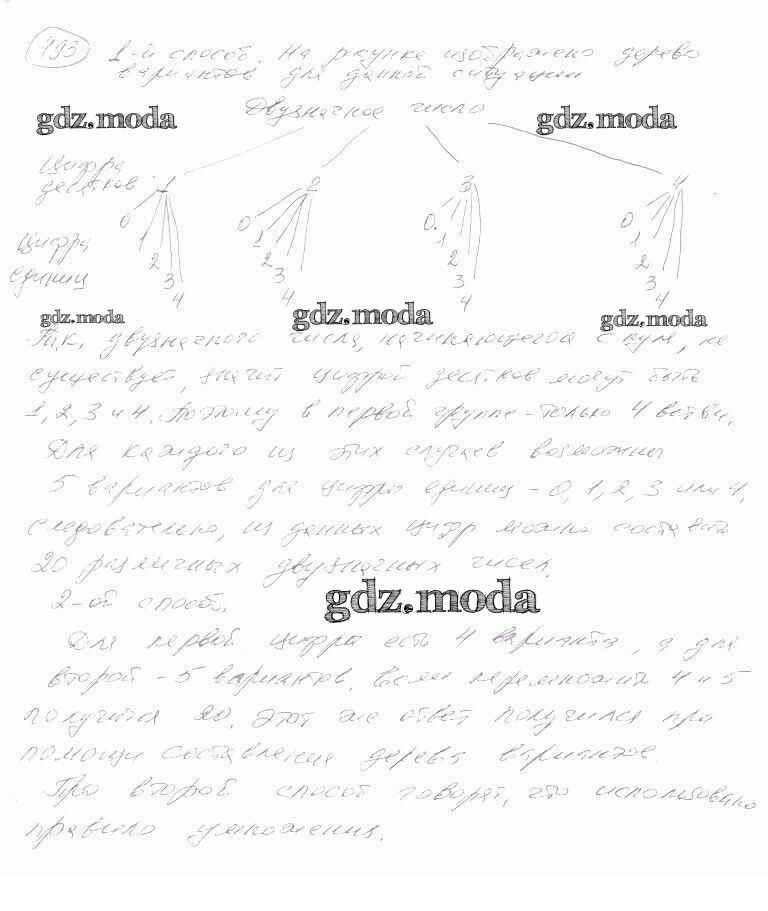 493 1-й способ. На рисунке изображено дерево
вариантов для данной ситуации
gdz.moda Двузначное число gdz.moda
Цифра
десятков 1 2 3 4
0 0 0. 0
Цифра 1 1 1 1
единиц 2 2 2 2
3 3 3 3
4 4 4 4
gdz.moda gdz.moda gdz.moda
Так, двузначного числа, начинающегося с нуля, не
существует, значит цифрой десятков могут быть
1, 2, 3 и 4. Поэтому в первой группе - только 4 ветви.
Для каждого из этих случаев возможны
5 вариантов для цифры единиц - 0, 1, 2, 3 или 4,
следовательно, из данных цифр можно составить
20 различных двузначных чисел.
2-ой способ. gdz.moda
Для первой цифры есть 4 варианта, а для
второй - 5 вариантов. Если перемножить 4 и 5
получится 20. Этот же ответ получился при
помощи составления дерева вариантов.
Про второй способ говорят, что использовано
правило умножения.